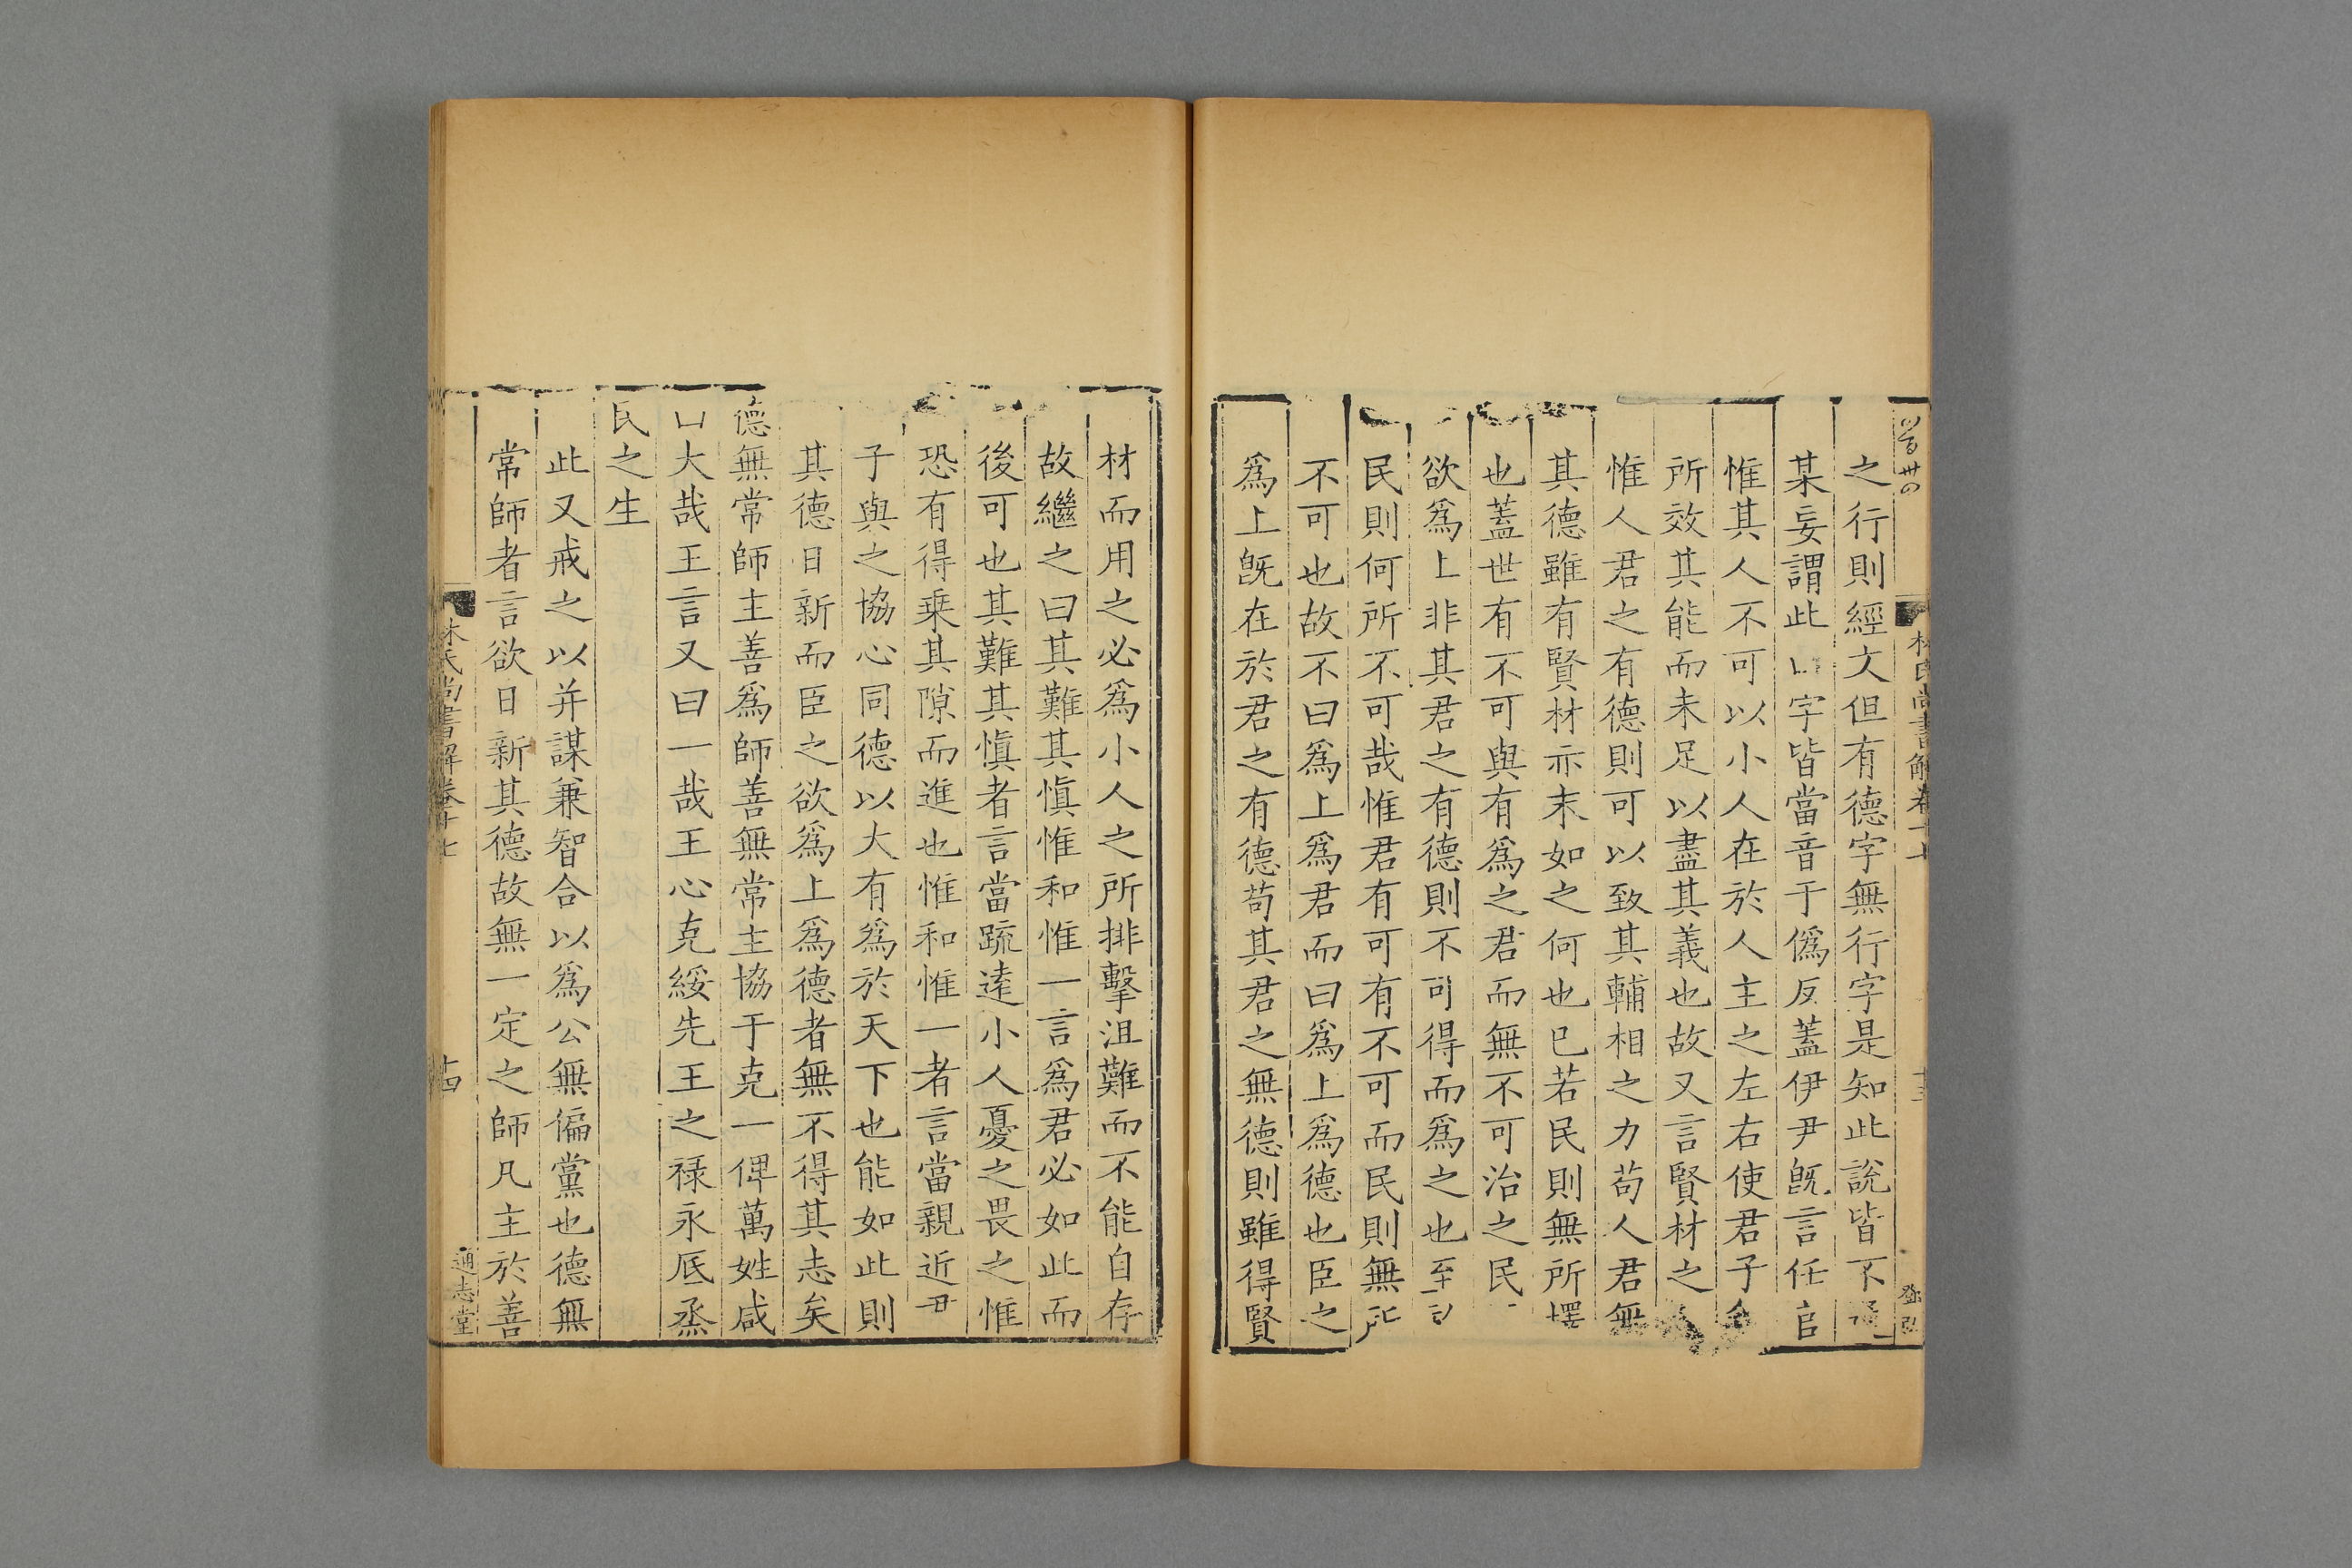 林氏尚書解卷十七
十三
之行則經文但有德字無行字是知此說皆不通
某妄謂此 字皆當音于僞反蓋伊尹旣言任官
惟其人不可以小人在於人主之左右使君子
所效其能而未足以盡其義也故又言賢材之
惟人君之有德則可以致其輔相之力苟人君無
其德雖有賢材亦末如之何也已若民則無所擇
也蓋世有不可與有爲之君而無不可治之民
欲爲上非其君之有德則不可得而爲之也至
民則何所不可哉惟君有可有不可而民則無所
不可也故不曰爲上爲君而曰爲上爲德也臣之
爲上旣在於君之有德苟其君之無德則雖得賢
材而用之必爲小人之所排擊沮難而不能自存
故繼之曰其難其愼惟和惟一言爲君必如此而
後可也其難其愼者言當疏逺小人憂之畏之惟
恐有得乗其隙而進也惟和惟一者言當親近君
子與之協心同德以大有爲於天下也能如此則
其德日新而臣之欲爲上爲德者無不得其志矣
德無常師主善爲師善無常主協于克一俾萬姓咸
曰大哉王言又曰一哉王心克綏先王之祿永厎烝
民之生
此又戒之以并謀兼智合以爲公無偏黨也德無
常師者言欲日新其德故無一定之師凡主於善
林氏尚書解卷十七
十四
通志堂